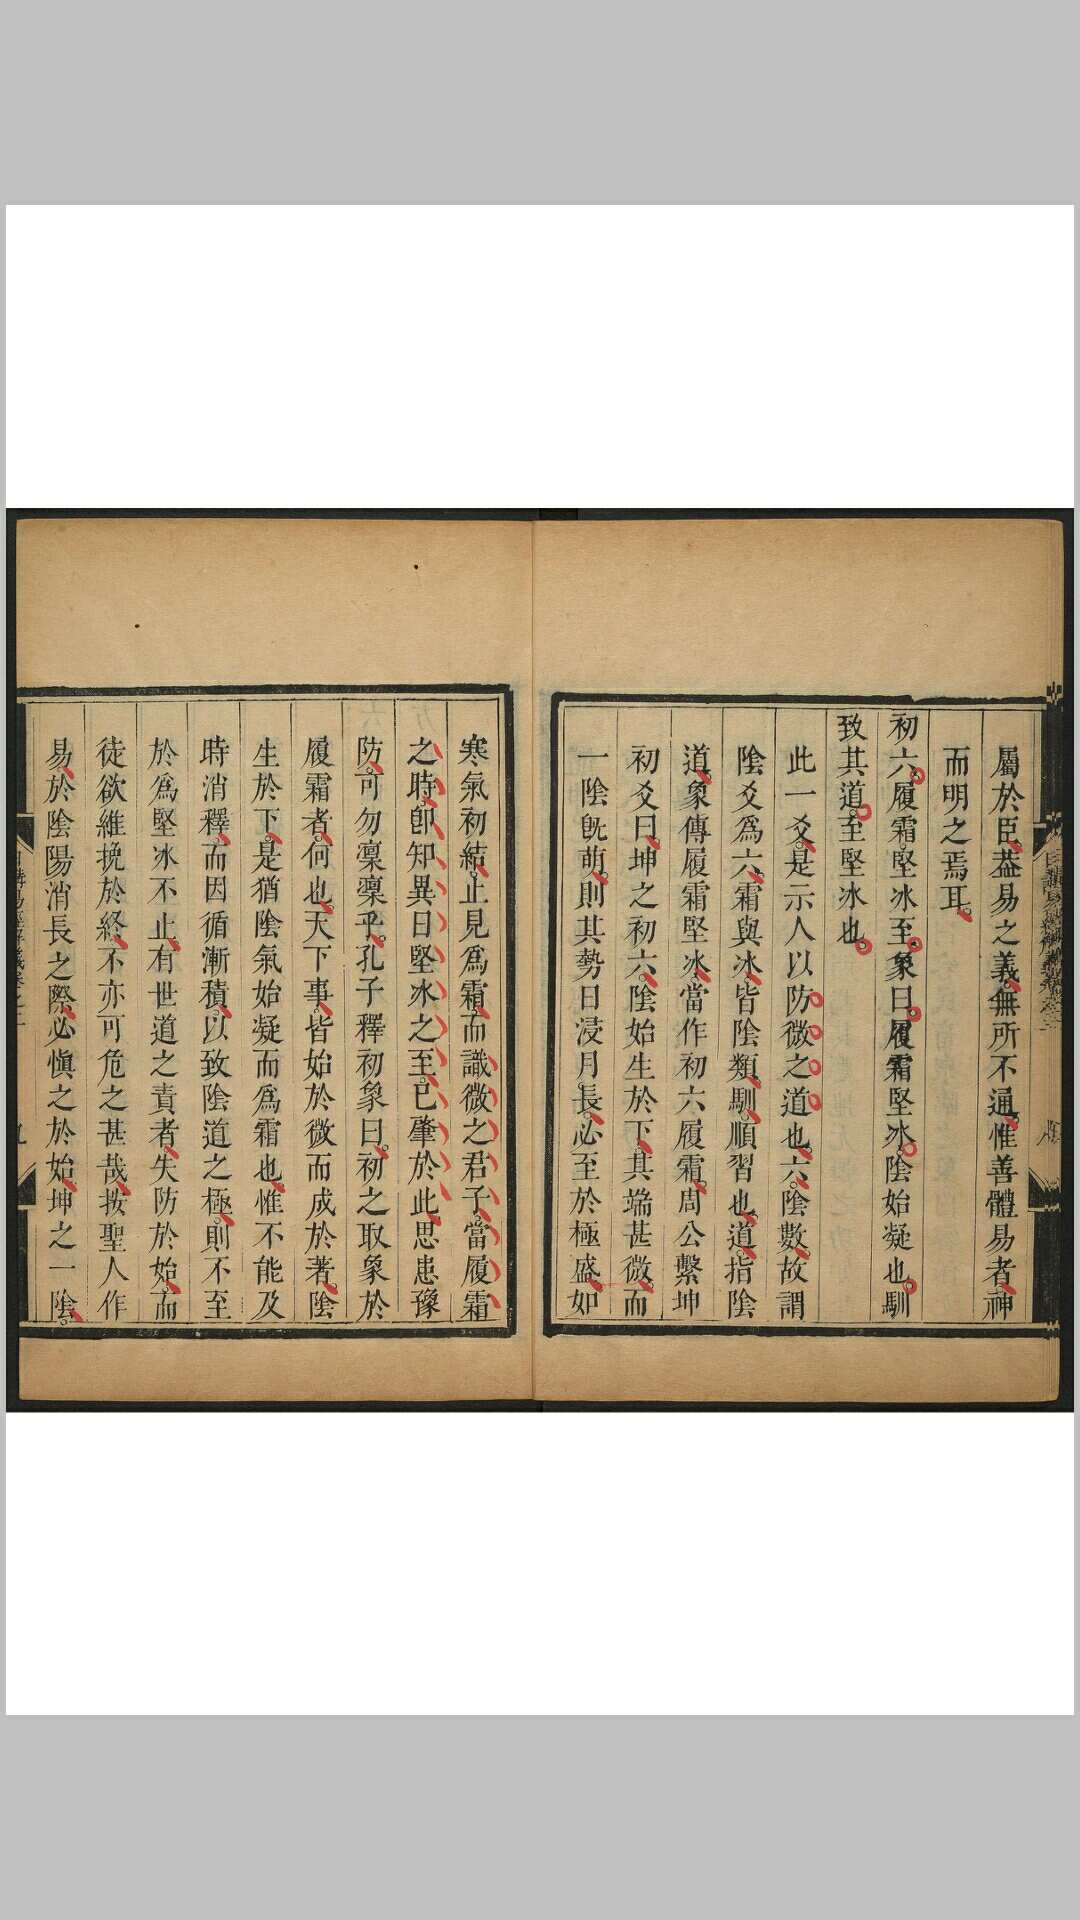 屬於臣葢易之義無所不通惟善體易者神
而明之焉耳
初六履霜堅冰至象曰履霜堅冰陰始凝也馴
致其道至堅冰也
此一爻是示人以防微之道也六陰數故謂
陰爻爲六霜與冰皆陰類馴順習也道指陰
道象傳履霜堅冰當作初六履霜周公繫坤
初爻曰坤之初六陰始生於下其端甚微而
一陰旣萌則其勢日浸月長必至於極盛如
寒氣初結止見爲霜而識微之君子當履霜
之時卽知異日堅冰之至已肇於此思患豫
防可勿凜凜乎孔子釋初象曰初之取象於
履霜者何也天下事皆始於微而成於著陰
生於下是猶陰氣始凝而爲霜也惟不能及
時消釋而因循漸積以致陰道之極則不至
於爲堅冰不止有世道之責者失防於始而
徒欲維挽於終不亦可危之甚哉按聖人作
易於陰陽消長之際必愼之於始坤之一陰